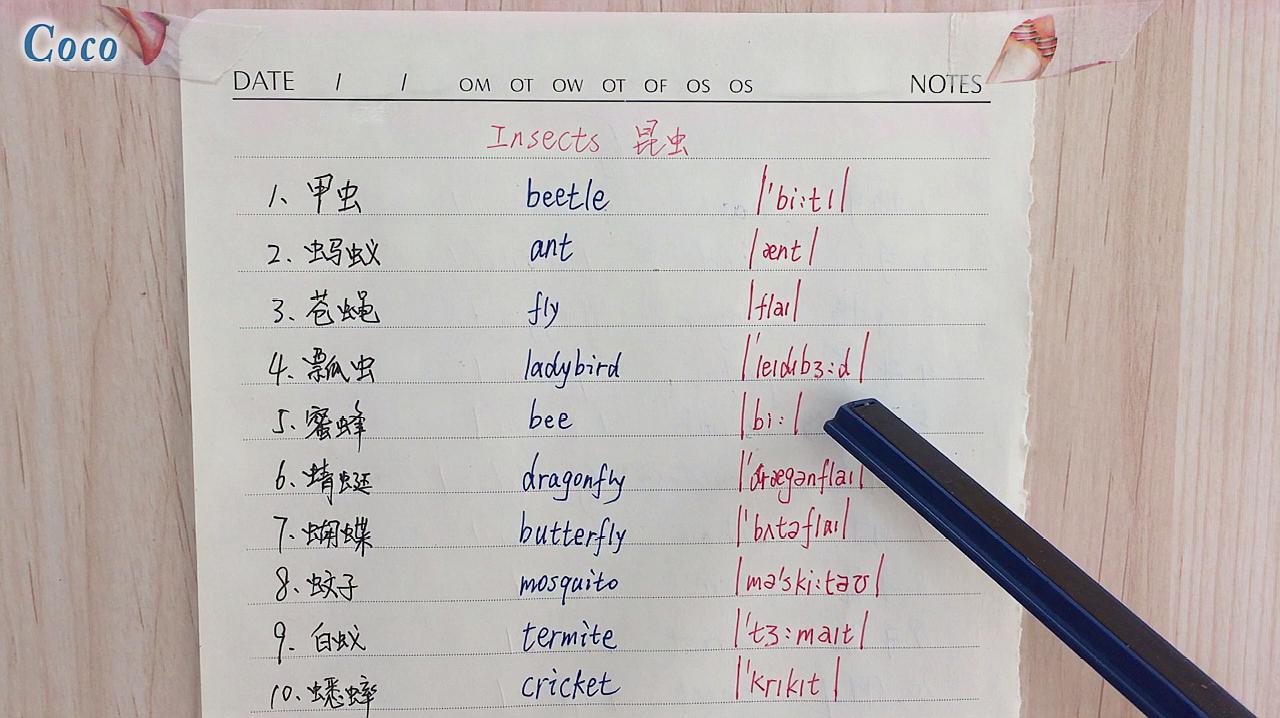 Coco
DATE / / OM OT OW OT OF OS OS NOTES
Insects 昆虫
1、甲虫 beetle |ˈbi:tl|
2、蚂蚁 ant |ænt|
3、苍蝇 fly |flaɪ|
4、瓢虫 ladybird |ˈleɪdɪbɜ:d|
5、蜜蜂 bee |bi:|
6、蜻蜓 dragonfly |ˈdrægənflaɪ|
7、蝴蝶 butterfly |ˈbʌtəflaɪ|
8、蚊子 mosquito |məˈski:təʊ|
9、白蚁 termite |ˈtɜ:maɪt|
10、蟋蟀 cricket |ˈkrɪkɪt|